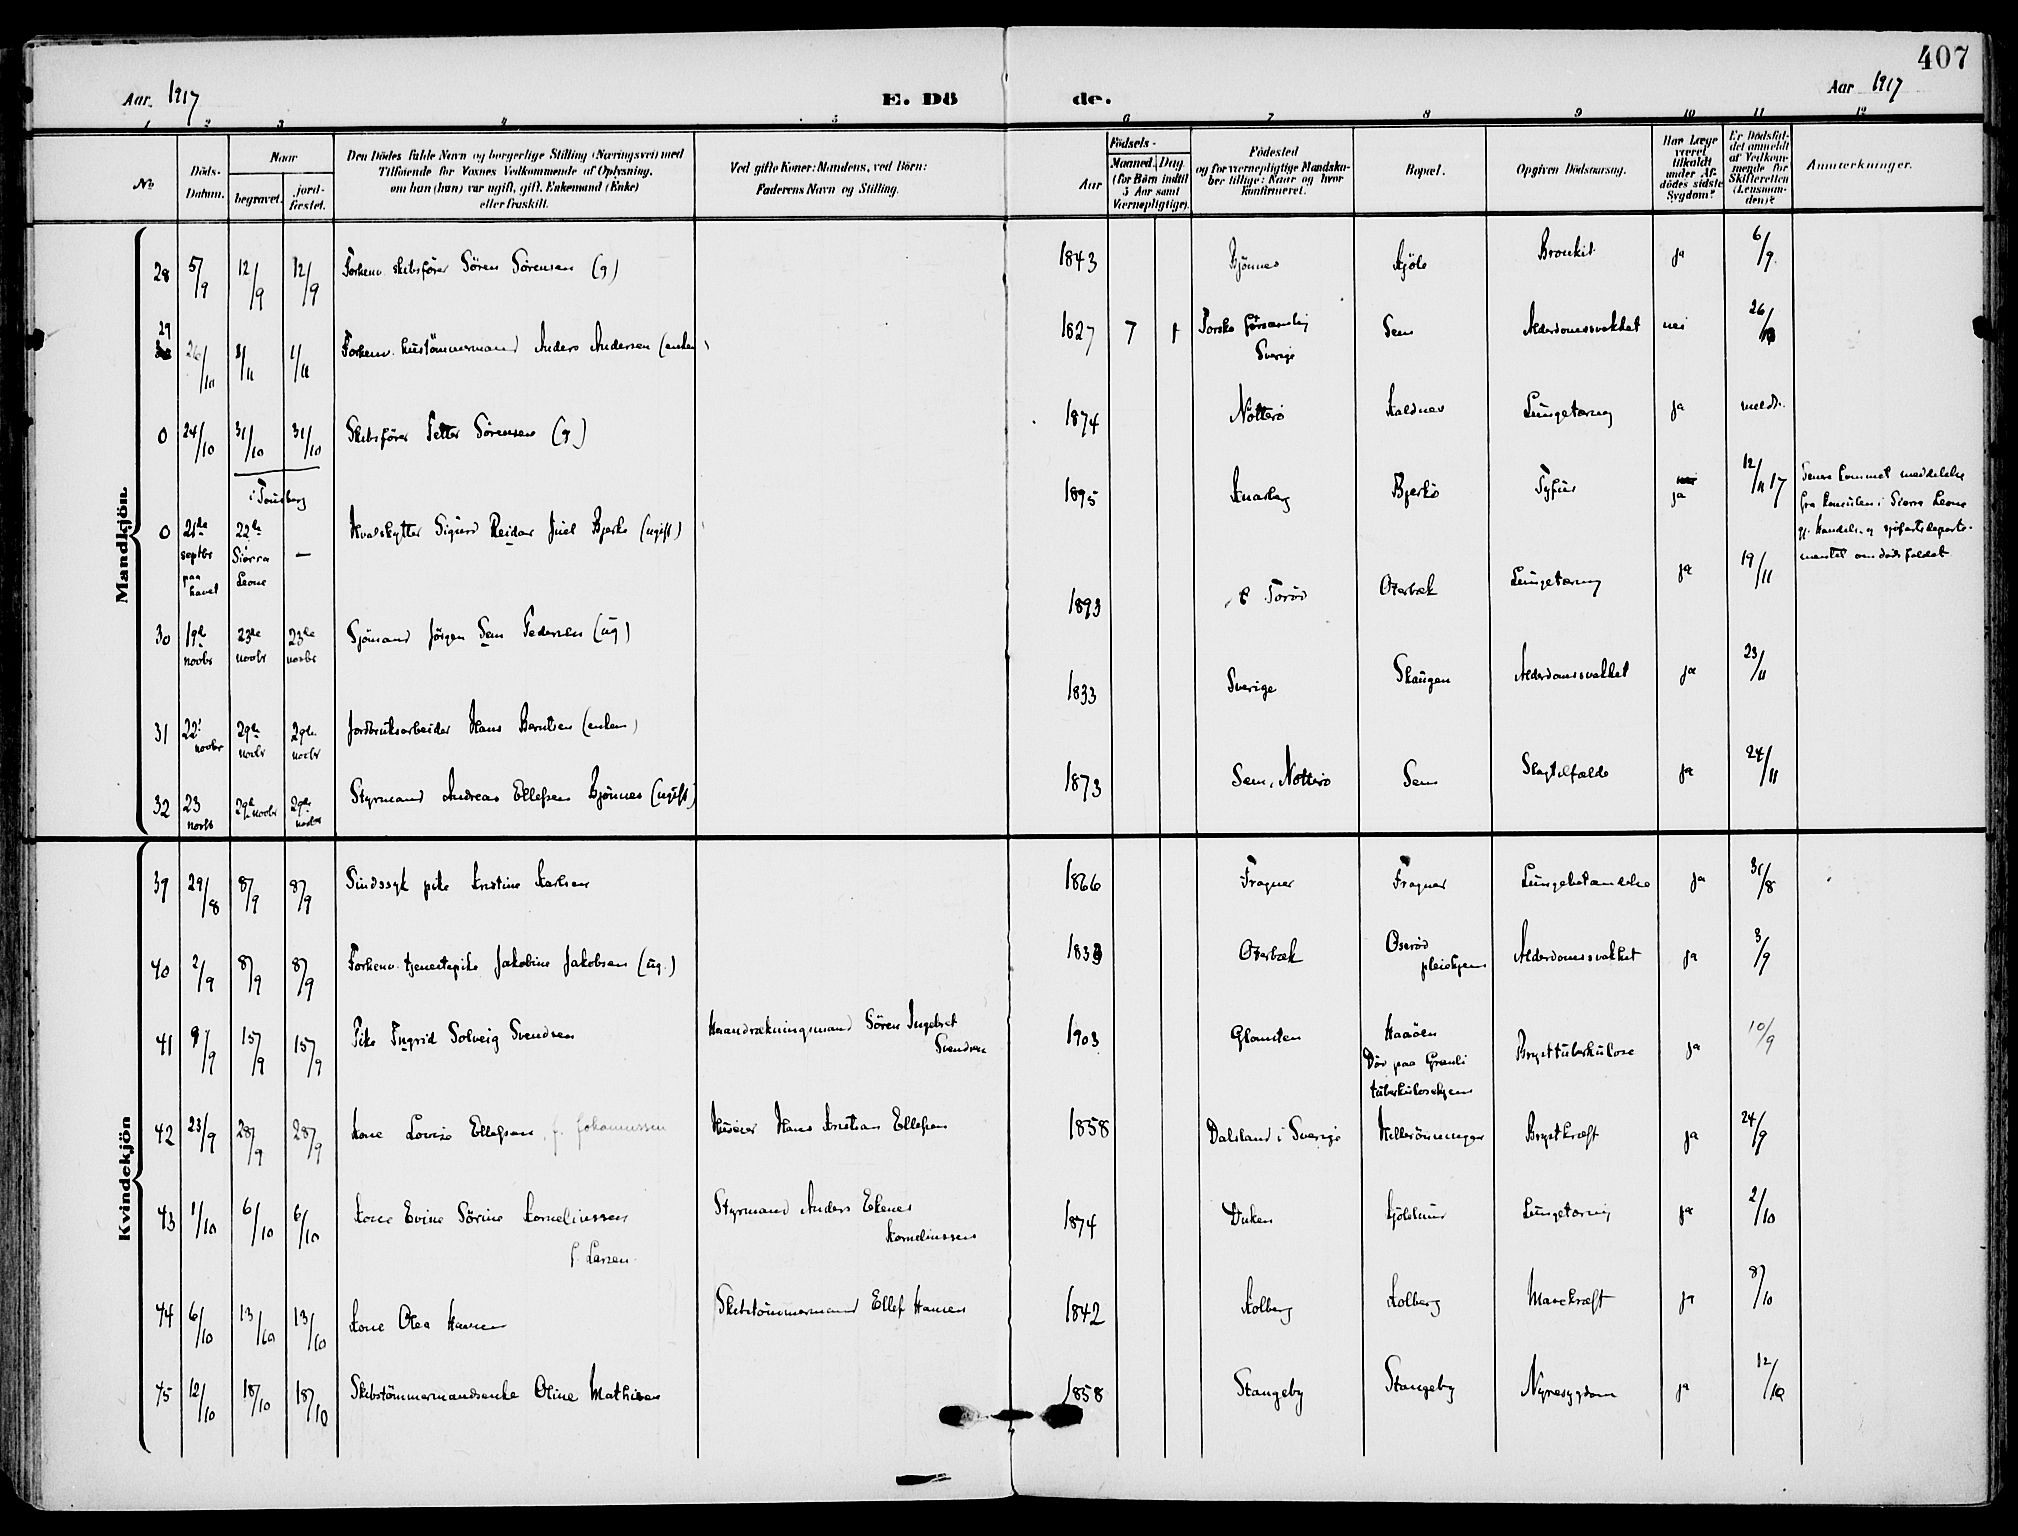 407
Aar 1917 E. Dö de. Aar 1917
1 2 3 4 5 6 7 8 9 10 11 12
No
Döds-Datum.
Naar
begravet.
jord-fæstet.
Den Dödes fulde Navn og borgerlige Stilling (Næringsvei) med
Tilföiende for Voxnes Vedkommende af Oplysning,
om han (hun) var ugift, gift, Enkemand (Enke)
eller fraskilt.
Ved gifte Koner: Mandens, ved Börn:
Faderens Navn og Stilling.
Födsels-
Aar
Maaned. Dag.
(for Börn indtil
5 Aar samt
Værnepligtige).
Födested
og for værnepligtige Mandska-
ber tillige: Naar og hvor
konfirmeret.
Bopæl.
Opgiven Dödsaarsag.
Har Læge
været
tilkaldt
under Af-
dödes sidste
Sygdom?
Er Dödsfal-
det anmeldt
af Vedkom-
mende for
Skifteretten
(Lensman-
den)?
Anmerkninger.
Mandkjön.
28 5/9 12/9 12/9 Forhenv. skibsförer Sören Sörensen (g) 1843 Bjönnes Kjöle Bronkit ja 6/9
29 26/10 1/11 1/11 Forhenv. hustömmermand Anders Andersen (enkem) 1827 7 1 Torsko forsamling
Sverige Sem Alderdomssvakhet nei 26/10
0 24/10 31/10 31/10 Skibsförer Petter Sörensen (g) 1874 Nötterö Kaldnes Lungetæring ja meldt.
i Tönsberg
0 21de septbr paa havet 22de Sierra Leone — Hvalskytter Sigurd Reidar Juel Bjerkö (ugift) 1895 Knarberg Bjerkö Tyfus ja 12/11 17
Senere kommet meddelelse
fra konsulen i Sierra Leone
gj. Handels- og sjöfartsdeparte-
mentet om dödsfaldet
30 19de novbr 23de novbr 23de novbr Sjömand Jörgen Sem Pedersen (ug) 1893 Toröd Oterbæk Lungetæring ja 19/11
31 22' novbr 29de novbr 29de novbr Jordbruksarbeider Hans Berntsen (enkem) 1833 Sverige Skaugen Alderdomssvakhet ja 23/11
32 23 novbr 29de novbr 29de novbr Styrmand Andreas Ellefsen Bjönnes (ugift) 1873 Sem, Nötterö Sem Slagtilfælde ja 24/11
Kvindekjön
39 29/8 8/9 8/9 Sindssyk pike Kristine Karlsen 1866 Fragner Fragner Lungebetændelse ja 31/8
40 2/9 8/9 8/9 Forhenv. tjenestepike Jakobine Jakobsen (ug.) 1833 Oterbæk Oseröd
pleiehjem Alderdomssvakhet ja 3/9
41 9/9 15/9 15/9 Pike Ingrid Solveig Svendsen Haandrækningsmand Sören Ingebret
Svendsen 1903 Glomsten Haaöen
Död paa Grænli
tuberkulosehjem Brysttuberkulose ja 10/9
42 23/9 28/9 28/9 Kone Lovise Ellefsen f. Johannessen Huseier Hans Kristian Ellefsen 1858 Dalsland i Sverige Hellerönningen Brystkræft ja 24/9
43 1/10 6/10 6/10 Kone Evine Sörine Korneliussen
f. Larsen. Styrmand Anders Ekenes
Korneliussen 1874 Duken Kjölelund Lungetæring ja 2/10
44 6/10 13/10 13/10 Kone Olea Hansen Skibstömmermand Ellef Hansen 1842 Kolberg Kolberg Mavekræft ja 8/10
45 12/10 18/10 18/10 Skibstömmermandsenke Oline Mathisen 1858 Stangeby Stangeby Nyresygdom ja 12/10